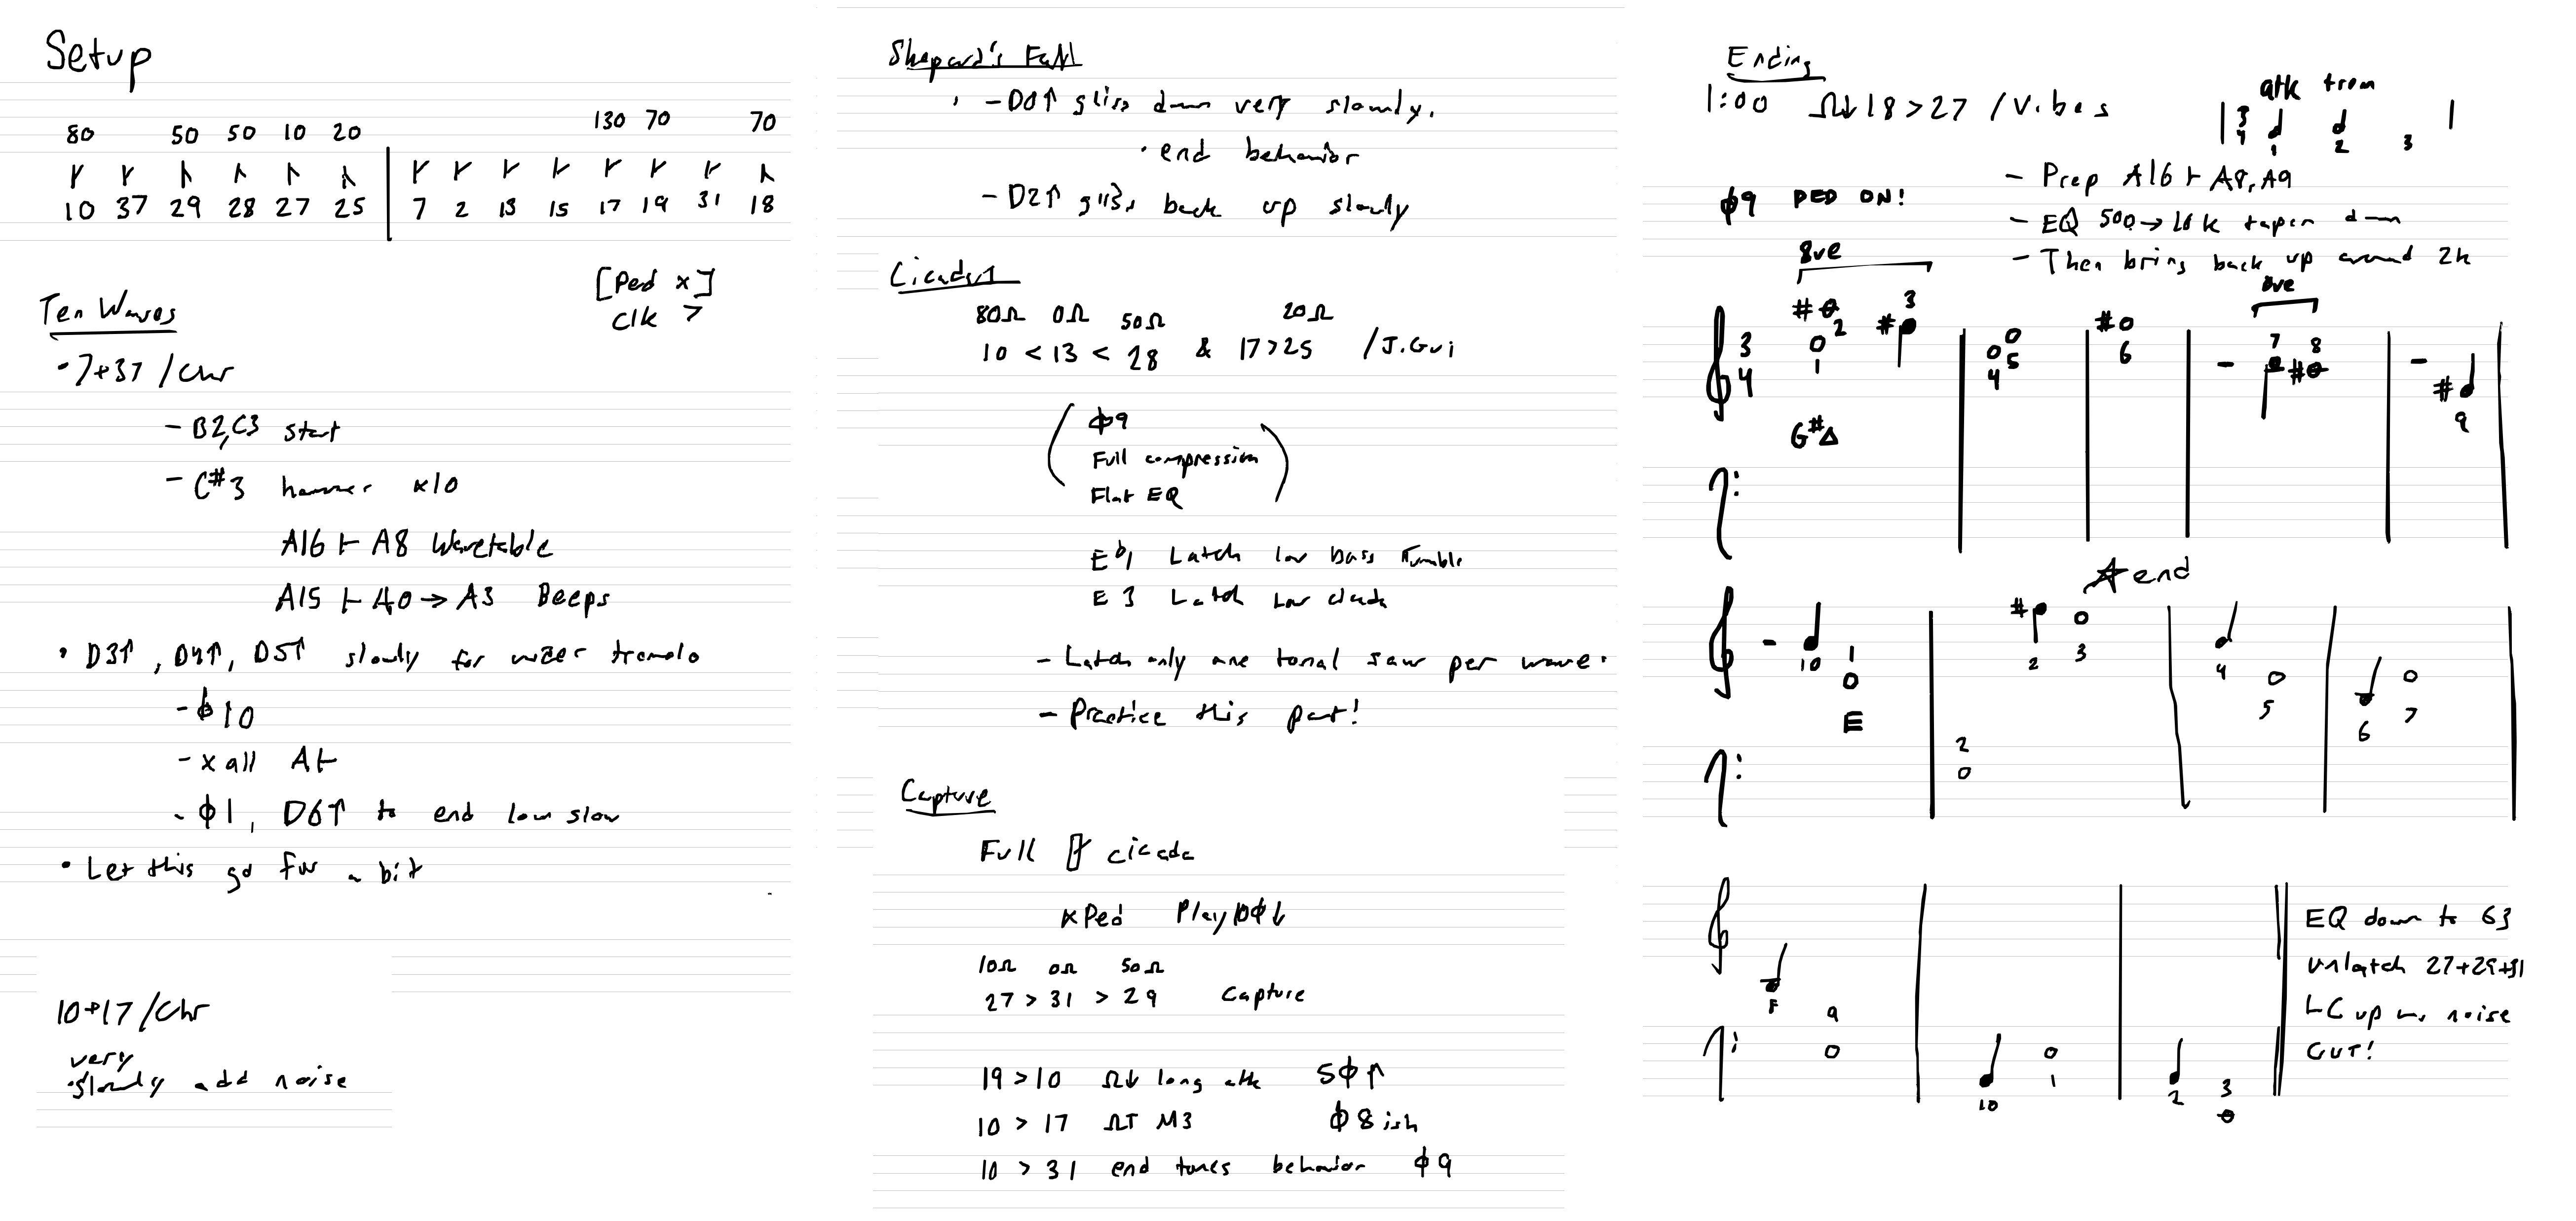 Setup
80 50 50 10 20 130 70 70
10 37 29 28 27 25 7 2 13 15 17 19 31 18
[Ped x]
Clk >
Ten Waves
• 7+37 /Chr
- B2, C3 start
- C#3 hammer x10
A16 ⊢ A8 Wavetable
A15 ⊢ A0 → A3 Beeps
• D3↑, D4↑, D5↑ slowly for water tremolo
- ϕ10
- x all A⊢
- ϕ1, D6↑ to end low slow
• Let this go for a bit
10+17 /Chr
very
• slowly add noise
Shepard's Fall
• - D0↑ gliss down very slowly.
• end behavior
- D2↑ gliss back up slowly
Cicada 1
80Ω 0Ω 50Ω 20Ω
10 < 13 < 28 & 17 > 25 /J.Gui
ϕ9
Full compression
Flat EQ
Eb1 Latch low bass rumble
E3 Latch low cicada
- Latch only one tonal saw per wave.
- Practice this part!
Capture
Full cicada
xPed Play 10ϕ↓
10Ω 0Ω 50Ω
27 > 31 > 29 Capture
19 > 10 Ω↓ long atk 5ϕ↑
10 > 17 Ω↑ M3 ϕ8 ish
10 > 31 end tones behavior ϕ9
Ending
1:00 Ω↓ 18 > 27 /Vibes
atk trem
3 4
1 2 3
ϕ9 PED ON!
- Prep A16 ⊢ A8, A9
- EQ 500 → 16k taper down
- Then bring back up around 2k
8ve 8ve
3 4
# 2 1 # 3 4 5 # 6 7 8 # # 9
G#Δ
end
10 1 E 2 # 2 3 4 5 6 7
8 9 10 1 2 3
EQ down to 63
unlatch 27+29+31
LC up w noise
CUT!